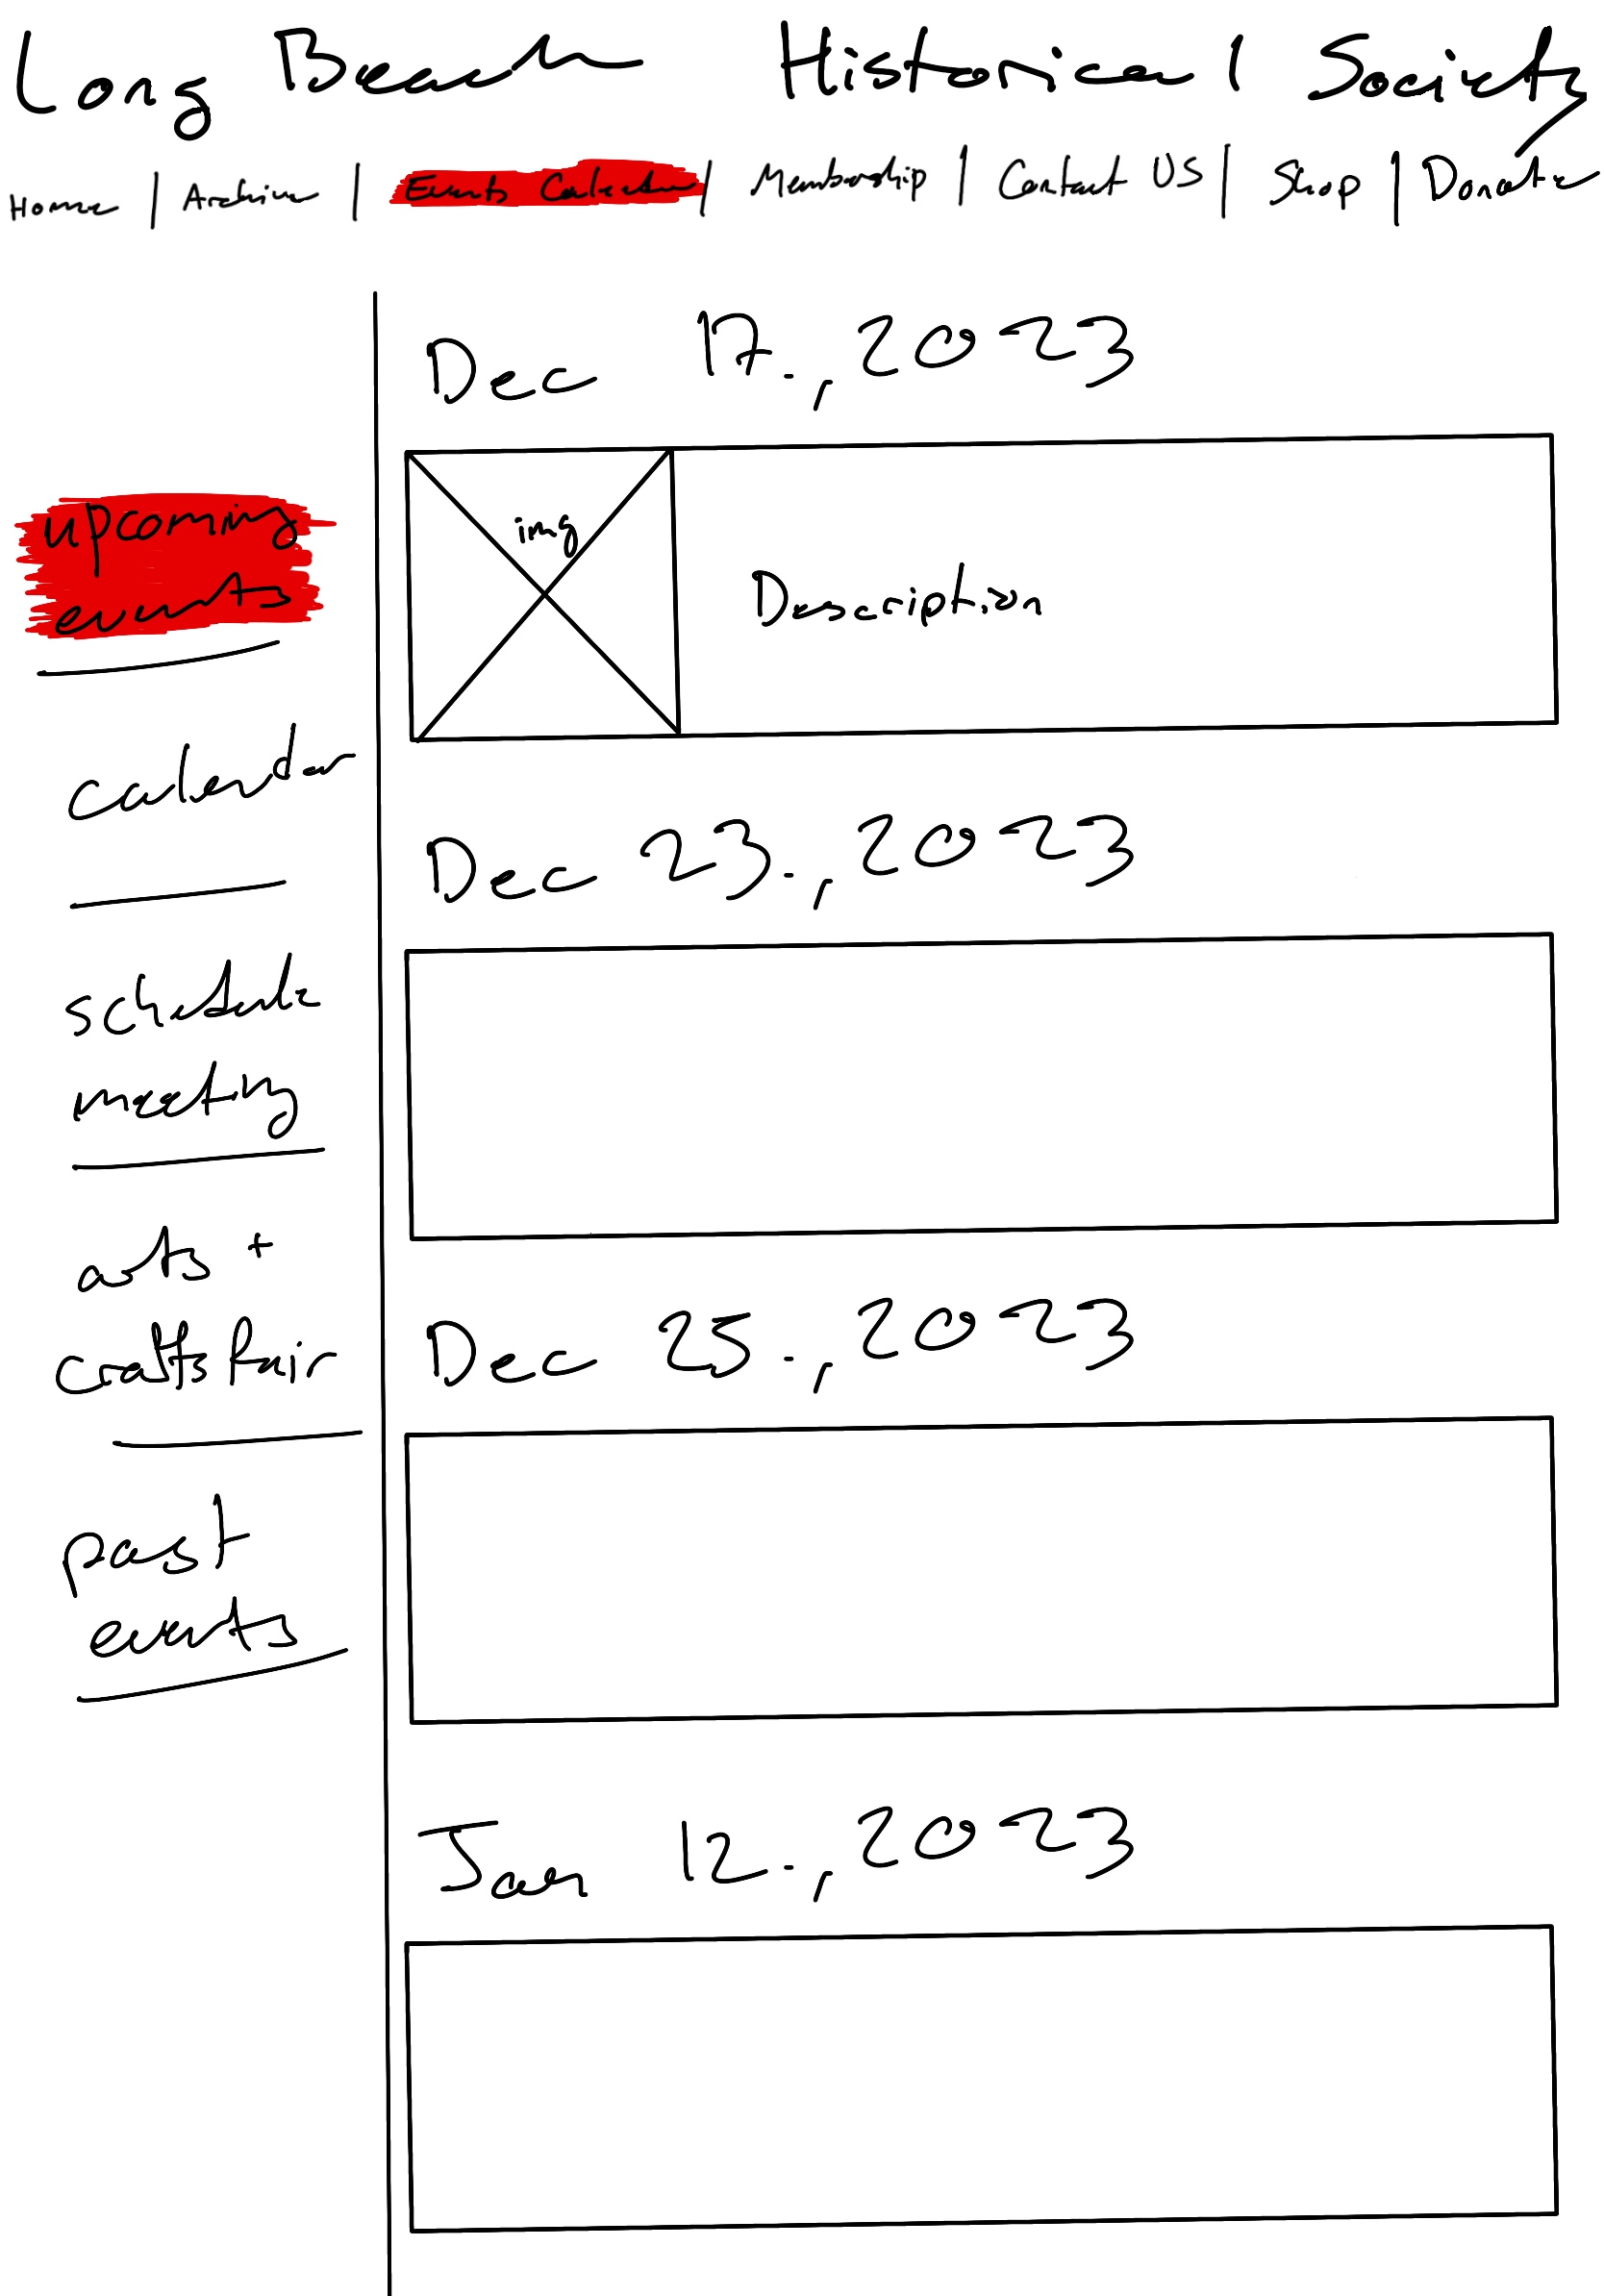 Long Beach Historical Society
Home | Archive | Events Calendar | Membership | Contact US | Shop | Donate
upcoming
events
calendar
schedule
meeting
arts +
crafts fair
past
events
Dec 17., 2023
img
Description
Dec 23., 2023
Dec 25., 2023
Jan 12., 2023